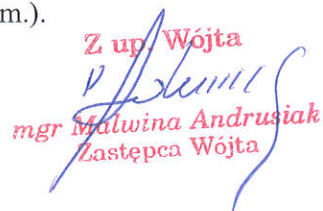 m.).
Z up. Wójta
mgr Malwina Andrusiak
Zastępca Wójta